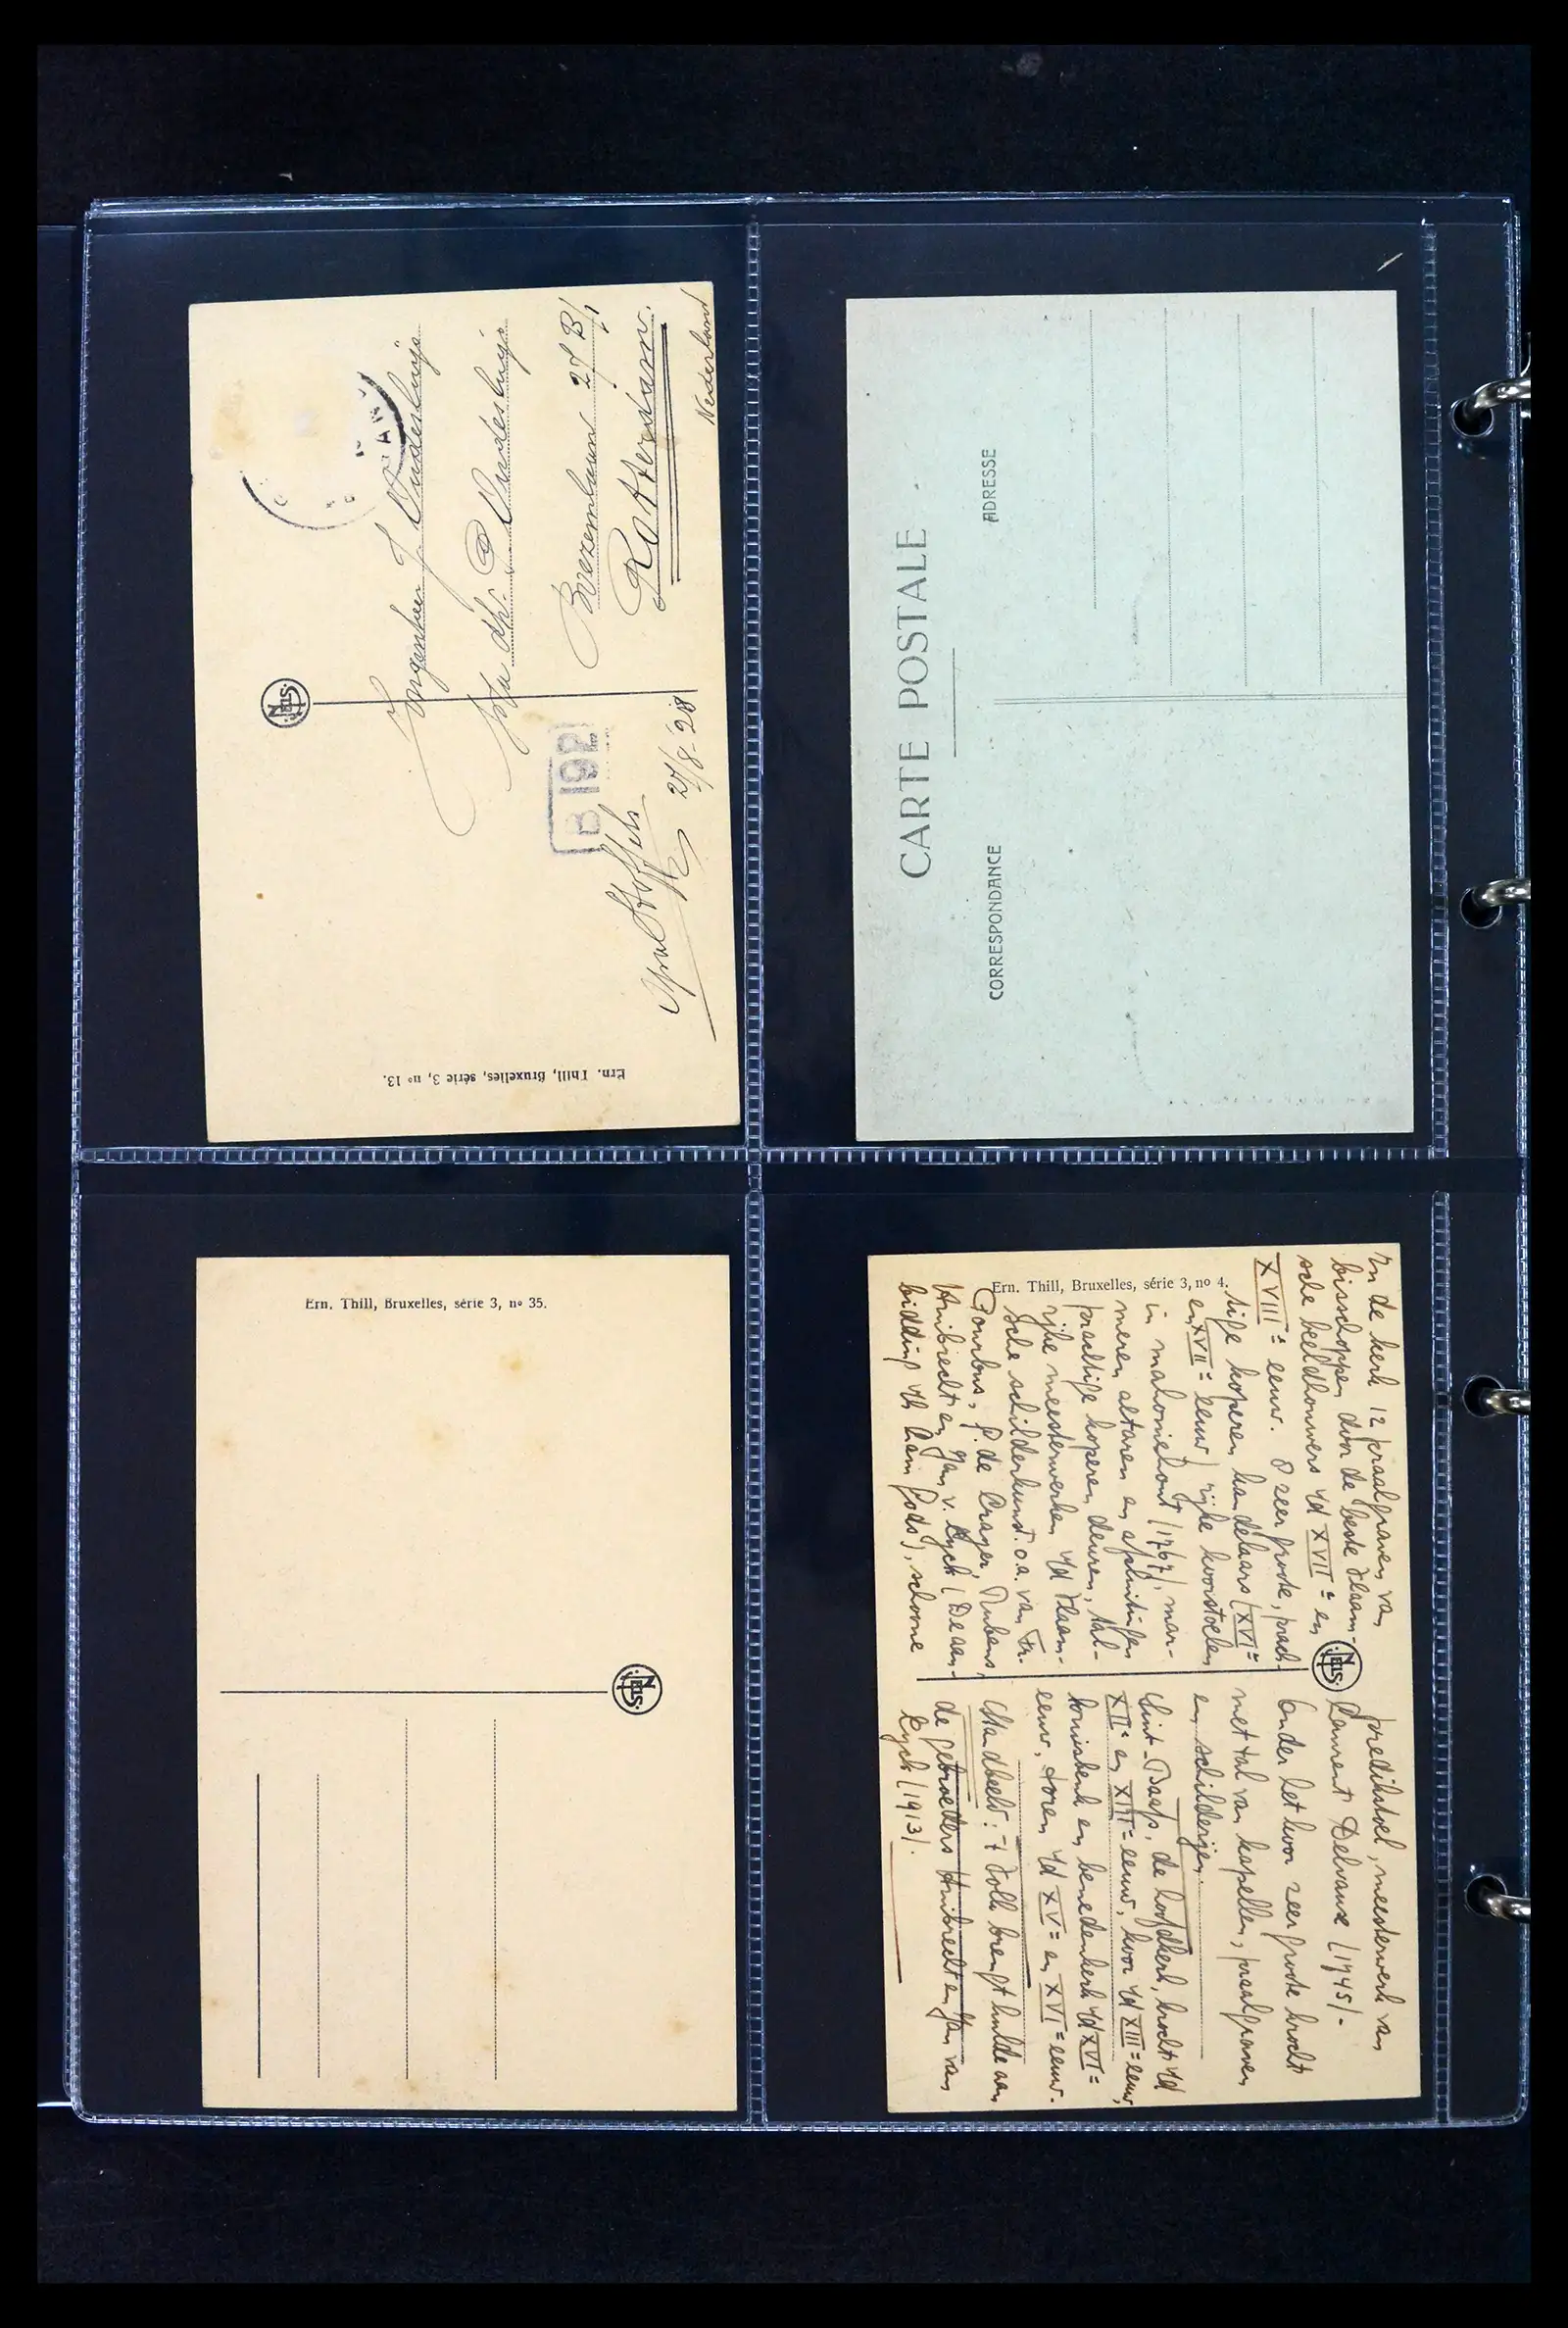 NELS
Jongenheer J. Oudesluijs
p/a dhr. P. Oudesluijs
27 B/1
Rotterdam.
Nederland
B 192
27/8-'28
Ern. Thill, Bruxelles, série 3, no 13.
CARTE POSTALE
CORRESPONDANCE
ADRESSE
Ern. Thill, Bruxelles, série 3, no 35.
NELS
Ern. Thill, Bruxelles, série 3, no 4.
NELS
In de kerk 12 praalgraven van
bisschoppen door de beste vlaam-
sche beeldhouwers v/d XVIIe en
XVIIIe eeuw. 8 zeer groote, prach-
tige koperen kandelaars (XVIe
en XVIIe eeuw) rijke koorstoelen
in mahoniehout (1767), mar-
meren altaren en afsluitingen
prachtige koperen deuren, tal-
rijke meesterwerken v/d Vlaam-
sche schilderkunst o.a. van Fr.
Pourbus, G. de Crayer, Rubens,
Huibrecht en Jan v. Eyck (De aan-
bidding v/h Lam Gods), schoone
predikstoel, meesterwerk van
Laurent Delvaux (1745).
Onder het koor zeer groote krocht
met tal van kapellen, praalgraven
en schilderijen.
Sint-Baafs, de hoofdkerk, krocht v/d
XIIe en XIIIe eeuw, koor v/d XIIIe eeuw,
kruiskerk en benedenkerk v/d XVIe
eeuw, toren v/d XVe en XVIe eeuw.
Standbeeld: 't Volk brengt hulde aan
de gebroeders Huibrecht en Jan van
Eyck (1913).